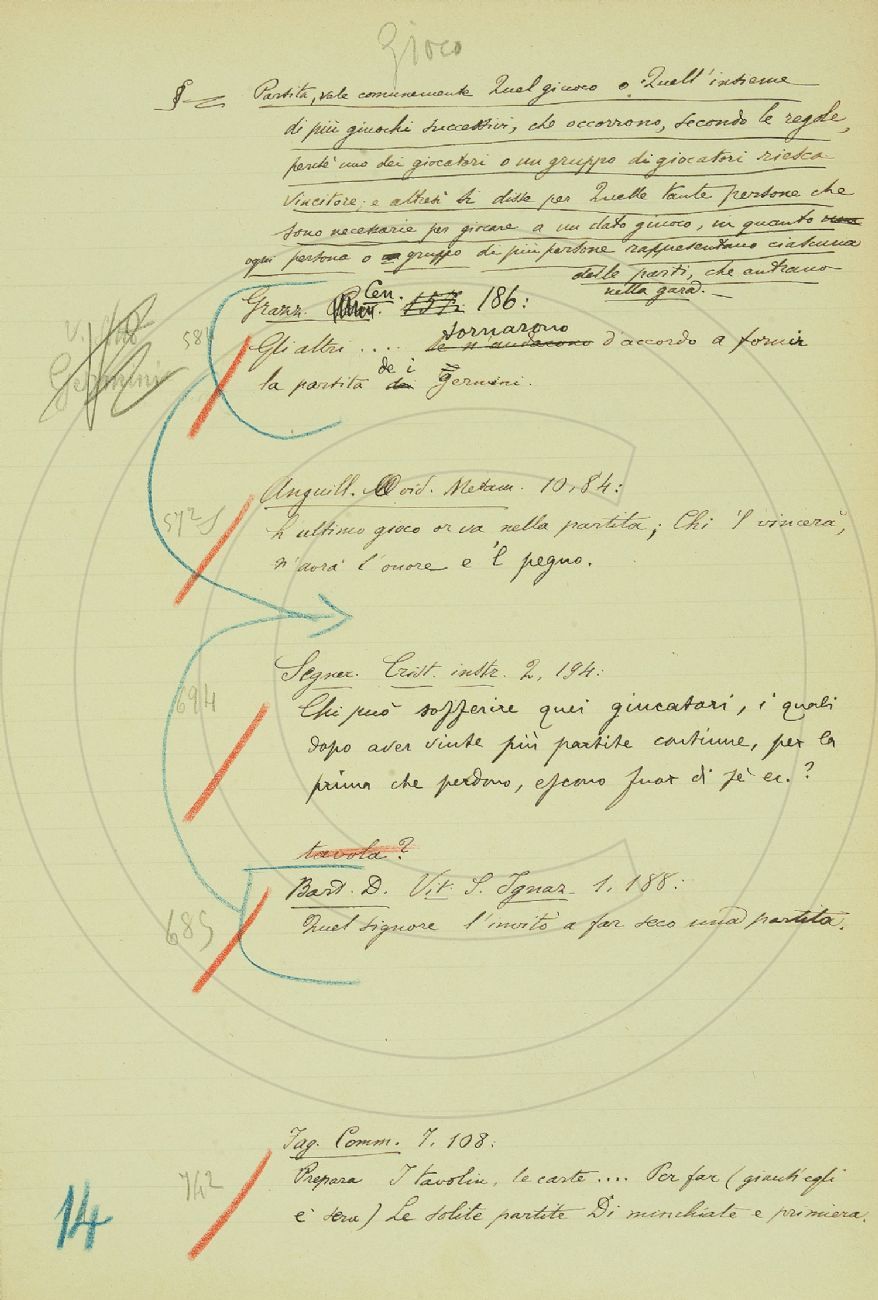 Gioco
§ — Partita, vale comunemente Quel giuoco o Quell'insieme
di più giuochi successivi, che occorrono, secondo le regole,
perchè uno dei giocatori o un gruppo di giocatori riesca
vincitore; e altresì si disse per Quelle tante persone che
sono necessarie per giocare a un dato giuoco, in quanto
ogni persona o gruppo di più persone rappresentano ciascuna
delle parti, che entrano
nella gara. —
Grazz. Cen. 157. 186:
581
tornarono
Gli altri .... se n'andarono d'accordo a fornir
de i
la partita de germini.
V. Germini
Anguill. Ovid. Metam. 10, 84:
572
L ultimo gioco or va nella partita; Chi 'l vincerà,
n'avrà l'onore e 'l pegno.
Segner. Crist. instr. 2, 194:
694
Chi può sofferire quei giucatori, i quali
dopo aver vinte più partite continue, per la
prima che perdono, escono fuor di sè ec.?
tavola?
Bart. D. Vit. S. Ignaz. 1. 188:
685
Quel signore l'invitò a far seco una partita.
Fag. Comm. 7. 108:
742
Prepara I tavolin, le carte .... Per far (giacch'egli
è sera) Le solite partite Di minchiate e primiera.
14